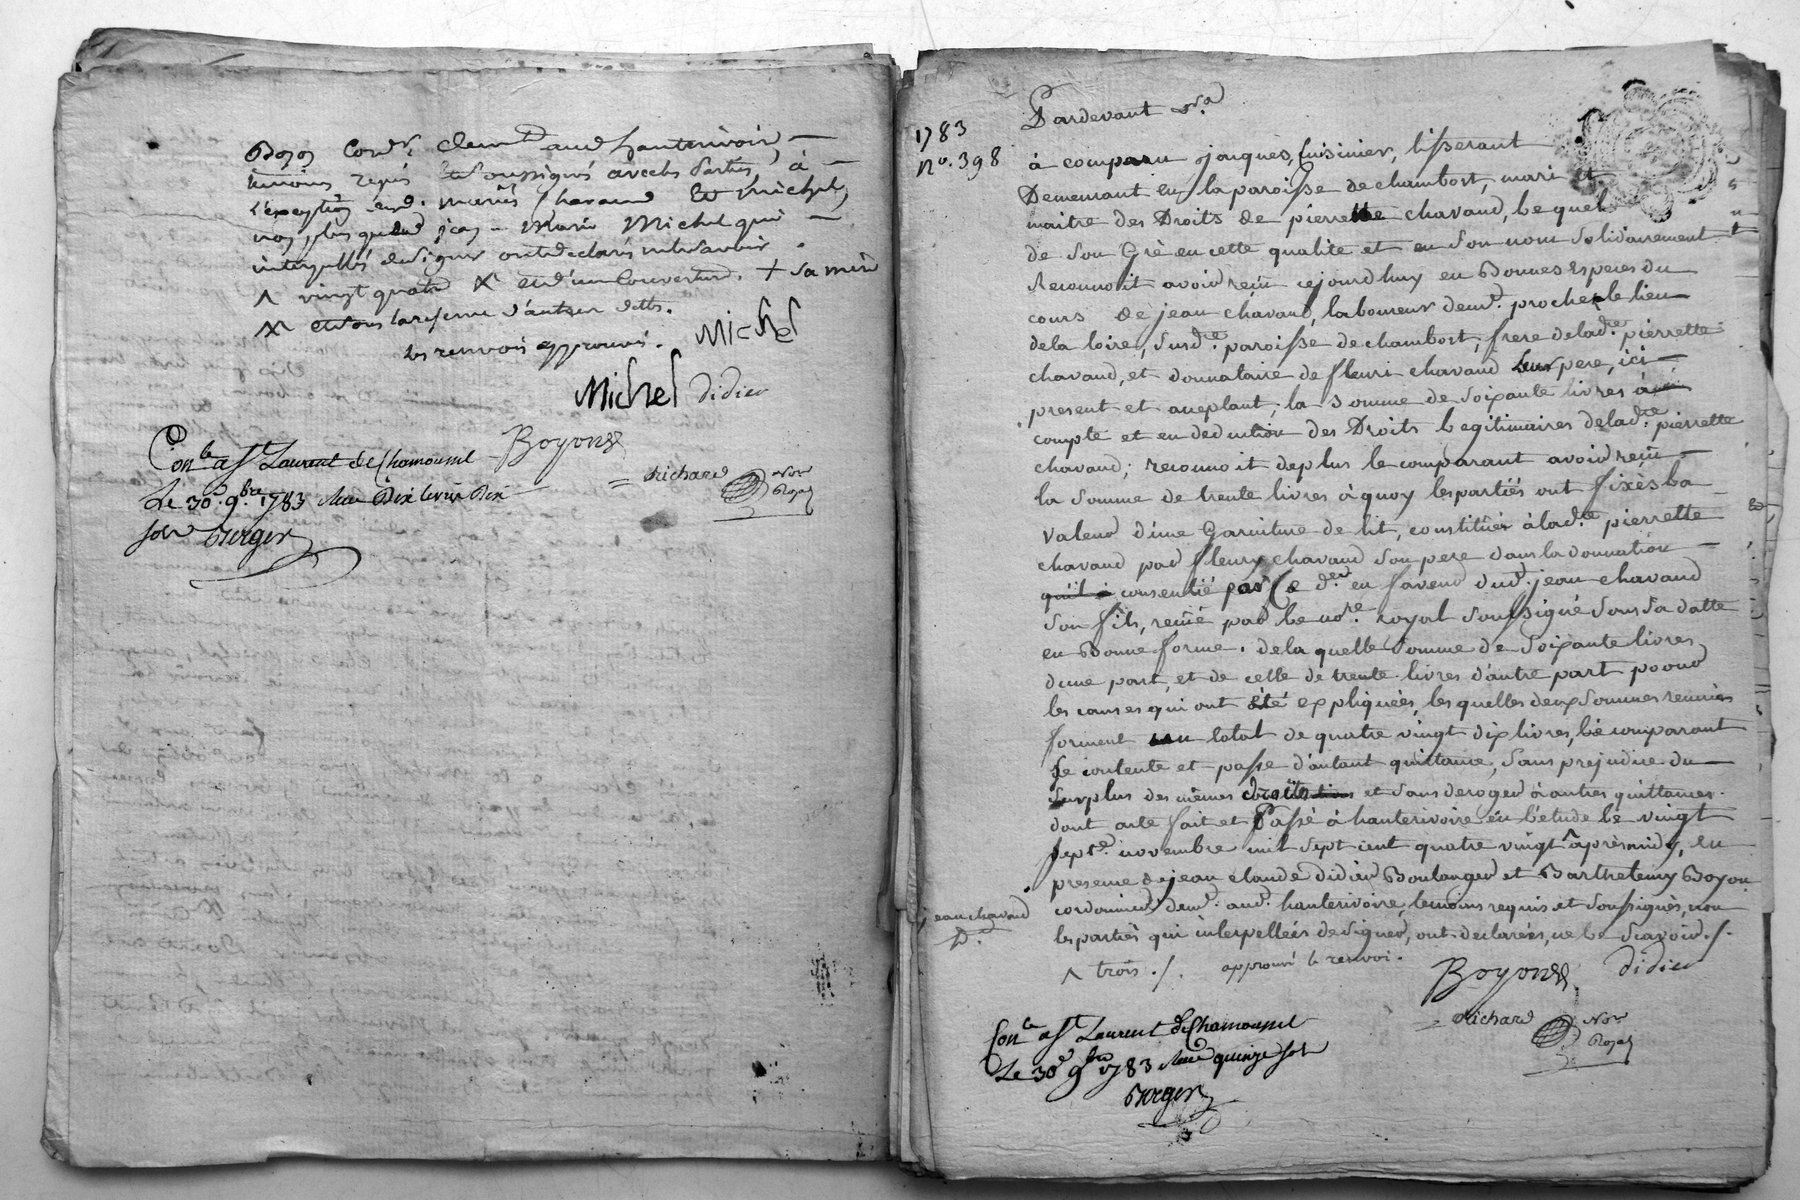 Boyon Cord.r demt aud hauterivoir,
temoins requis et soussignés avec les Parties, à
l'exception desd. mariés Chavand et Michel,
non plus que lad jean-Marie Michel qui
interpellés de signer ont declarés ne le savoir.
^ vingt quatre X et d'un Couverture. + sa mère
X et sous la reserve d'autres dettes.
les renvois approuvés. Michel
Michel didier
Boyon
Richard Nore Royal
Conlé a St Laurent de Chamousset
Le 30e 9bre 1783 Reçu Dix livres Dix
sols Berger
1783
No. 398
Pardevant &ra
à comparu jacques Cuisinier, tisserant
Demeurant en la paroisse de chambost, mari et
maitre des Droits de pierrette chavand, lequel
de son Gré en cette qualite et en son nom solidairement
Reconnoit avoir reçu cejourdhuy en Bonnes Especes du
cours de jean chavand, laboureur demt. proche le lieu
de la loire, susdte. paroisse de chambost, frere de ladte. pierrette
chavand, et donnataire de fleuri chavand leur pere, ici
present et acceptant; la somme de soixante livres à
compte et en deduction des Droits legitimaires deladte. pierrette
chavand; reconnoit deplus le comparant avoir reçu
la somme de trente livres à quoy les partiés ont fixés la
valeur d'une Garniture de lit, constituéé à ladte. pierrette
chavand par fleury chavand son pere dans la donnation
qu'il a consentié par Ce der. en faveur dud. jean chavand
son fils, reçuë par le nore. royal soussigné sous sa datte
en Bonne forme. de la quelle somme de soixante livres
d'une part, et de celle de trente livres d'autre part pour
les causes qui ont été expliquéés, les quelles deux sommes reunies
forment un total de quatre vingt dix livres, le comparant
se contente et passe d'autant quittance, sans prejudice du
surplus des mêmes droits et sans deroger à autres quittances.
dont acte fait et Passé à hauterivoire en l'étude le vingt
septe. novembre mil sept cent quatre vingt ^ après midy, en
presence de jean claude didier Boulanger et Barthelemy Boyon
cordonnier demt. aud. hauterivoire, temoins requis et soussignés, non
les partiés qui interpelléés de signer, ont declaréés, ne le sçavoir ./.
jean chavand
D.
^ trois ./. approuvé le renvoi.
Boyon didier
Richard Nore Royal
Conlé a St Laurent de Chamousset
Le 30e 9bre 1783 Reçu quinze sols
Berger